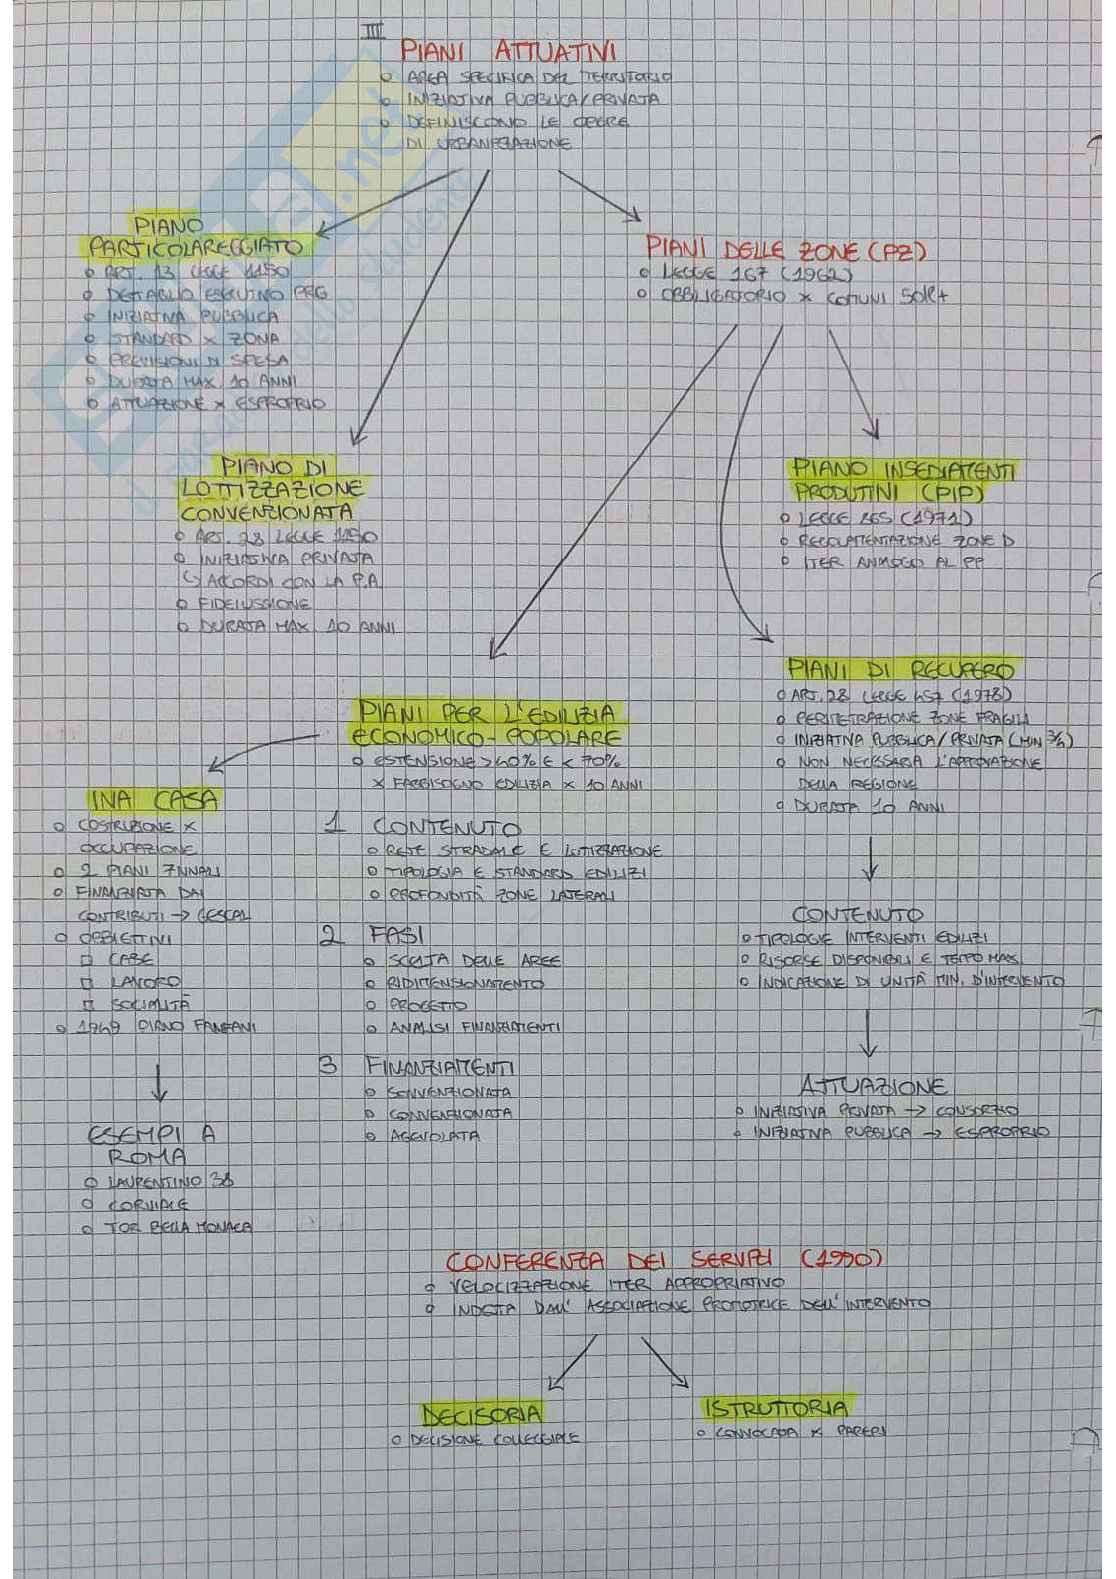 III
PIANI ATTUATIVI
o AREA SPECIFICA DEL TERRITORIO
o INIZIATIVA PUBBLICA/PRIVATA
o DEFINISCONO LE OPERE
DI URBANIZZAZIONE
PIANO
PARTICOLAREGGIATO
o ART. 13 LEGGE 1150
o DETTAGLIO ESECUTIVO PRG
o INIZIATIVA PUBBLICA
o STANDARD x ZONA
o PREVISIONI DI SPESA
o DURATA MAX 10 ANNI
o ATTUAZIONE x ESPROPRIO
PIANI DELLE ZONE (PZ)
o LEGGE 167 (1962)
o OBBLIGATORIO x COMUNI 50K+
PIANO DI
LOTTIZZAZIONE
CONVENZIONATA
o ART. 28 LEGGE 1150
o INIZIATIVA PRIVATA
↳ ACCORDI CON LA P.A
o FIDEIUSSIONE
o DURATA MAX 10 ANNI
PIANO INSEDIAMENTI
PRODUTTIVI (PIP)
o LEGGE 865 (1971)
o REGOLAMENTAZIONE ZONE D
o ITER ANALOGO AL PP
PIANI DI RECUPERO
o ART. 28 LEGGE 457 (1978)
o PERIMETRAZIONE ZONE FRAGILI
o INIZIATIVA PUBBLICA/PRIVATA (MIN 3/4)
o NON NECESSARIA L'APPROVAZIONE
DELLA REGIONE
o DURATA 10 ANNI
PIANI PER L'EDILIZIA
ECONOMICO-POPOLARE
o ESTENSIONE >40% E < 70%
x FABBISOGNO EDILIZIA x 10 ANNI
INA CASA
o COSTRUZIONE x
OCCUPAZIONE
o 2 PIANI 7NNALI
o FINANZIATA DAI
CONTRIBUTI → GESCAL
o OBBIETTIVI
□ CASE
□ LAVORO
□ SOCIALITÀ
o 1949 PIANO FANFANI
1 CONTENUTO
o RETE STRADALE E LOTTIZZAZIONE
o TIPOLOGIA E STANDARD EDILIZI
o PROFONDITÀ ZONE LATERALI
2 FASI
o SCELTA DELLE AREE
o RIDIMENSIONAMENTO
o PROGETTO
o ANALISI FINANZIAMENTI
3 FINANZIAMENTI
o SOVVENZIONATA
o CONVENZIONATA
o AGEVOLATA
CONTENUTO
o TIPOLOGIE INTERVENTI EDILIZI
o RISORSE DISPONIBILI E TEMPO MAX
o INDICAZIONE DI UNITÀ MIN. D'INTERVENTO
ATTUAZIONE
o INIZIATIVA PRIVATA → CONSORZIO
o INIZIATIVA PUBBLICA → ESPROPRIO
ESEMPI A
ROMA
o LAURENTINO 38
o CORVIALE
o TOR BELLA MONACA
CONFERENZA DEI SERVIZI (1990)
o VELOCIZZAZIONE ITER APPROPRIATIVO
o INDETTA DALL'ASSOCIAZIONE PROMOTRICE DELL'INTERVENTO
DECISORIA
o DECISIONE COLLEGGIALE
ISTRUTTORIA
o CONVOCATA x PARERI